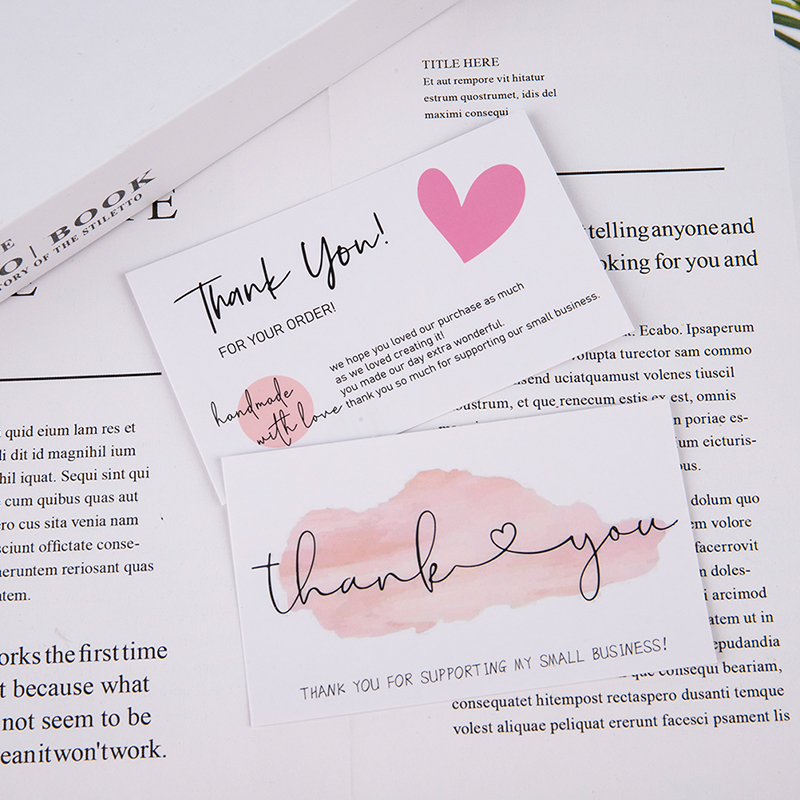 TITLE HERE
Et aut rempore vit hitatur
estrum quostrumet, idis del
maximi consequi
BOOK
TORY OF THE STILETTO
Thank You!
FOR YOUR ORDER!
we hope you loved our purchase as much
as we loved creating it!
you made our day extra wonderful.
thank you so much for supporting our small business.
handmade
with love
telling anyone and
oking for you and
Ecabo. Ipsaperum
volupta turector sam commo
send uciatquamust volenes tiuscil
ustrum, et que renecum estis ex est, omnis
n poriae es-
um eicturis-
ous.
dolum quo
em volore
facerrovit
n doles-
i arcimod
atem ut in
epudandia
que consequi beariam,
consequatet hitempost rectaspero dusanti temque
volest aliquae peliquat ererunt facesci psament lis
quid eium lam res et
di dit id magnihil ium
hil iquat. Sequi sint qui
cum quibus quas aut
ero cus sita venia nam
sciunt offictate conse-
neruntem reriosant quas
tem.
orks the first time
t because what
not seem to be
ean it won't work.
thank you
THANK YOU FOR SUPPORTING MY SMALL BUSINESS!